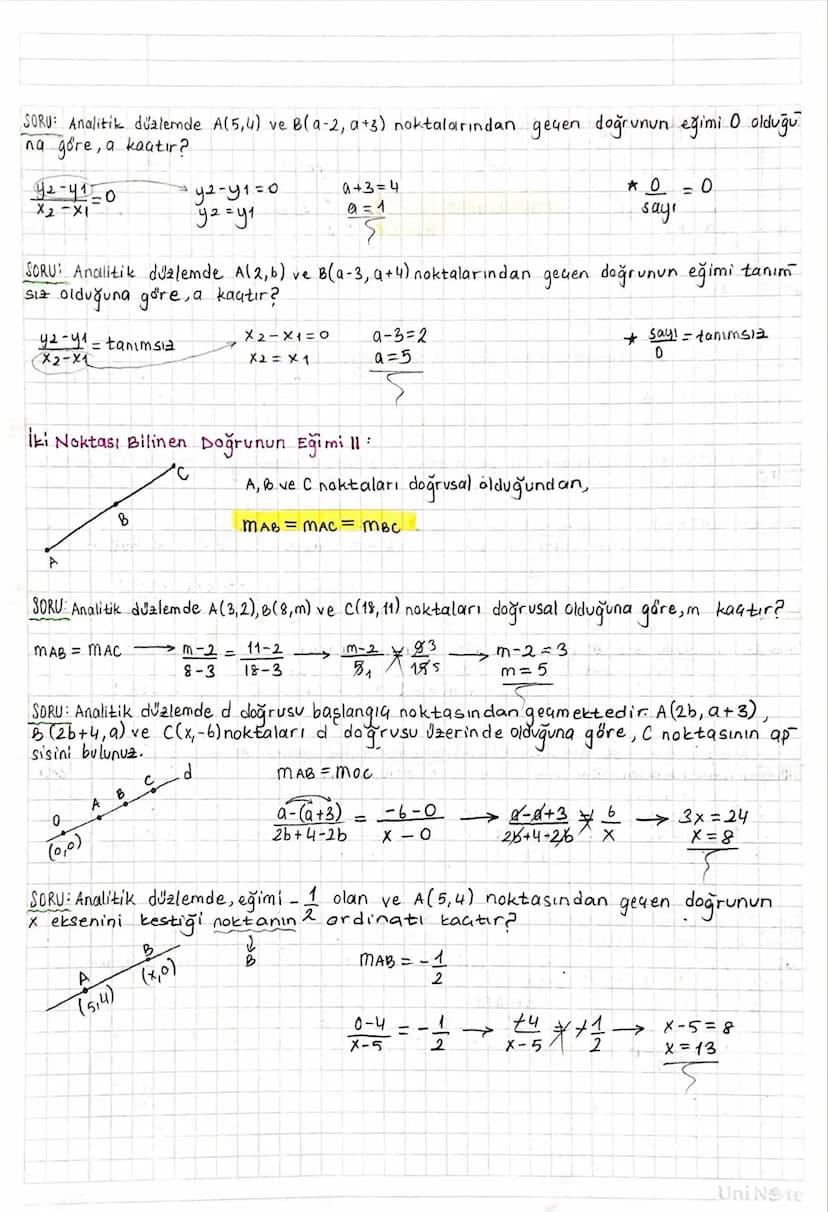 SORU: Analitik düzlemde A(5,4) ve B(a-2, a+3) noktalarından geçen doğrunun eğimi 0 olduğu
na göre, a kaçtır?
y2-y1/x2-x1=0 → y2-y1=0 a+3=4 * 0/sayı = 0
y2=y1 a=1
SORU: Analitik düzlemde A(2,b) ve B(a-3, a+4) noktalarından geçen doğrunun eğimi tanım
sız olduğuna göre, a kaçtır?
y2-y1/x2-x1 = tanımsız → x2-x1=0 a-3=2 * sayı/0 = tanımsız
x2=x1 a=5
İki Noktası Bilinen Doğrunun Eğimi II:
C
B
A
A, B ve C noktaları doğrusal olduğundan,
mAB = mAC = mBC
SORU: Analitik düzlemde A(3,2), B(8,m) ve C(18,11) noktaları doğrusal olduğuna göre, m kaçtır?
mAB = mAC → m-2/8-3 = 11-2/18-3 → m-2/5 1 9 3/15 5 → m-2=3
m=5
SORU: Analitik düzlemde d doğrusu başlangıç noktasından geçmektedir. A(2b, a+3),
B(2b+4, a) ve C(x,-6) noktaları d doğrusu üzerinde olduğuna göre, C noktasının ap
sisini bulunuz.
O A B C d
(0,0)
mAB = mOC
a-(a+3)/2b+4-2b = -6-0/x-0 → a-a+3/2b+4-2b = 6/x → 3x=24
x=8
SORU: Analitik düzlemde, eğimi -1/2 olan ve A(5,4) noktasından geçen doğrunun
x eksenini kestiği noktanın ordinatı kaçtır?
↓
B
A B
(5,4) (x,0)
mAB = -1/2
0-4/x-5 = -1/2 → -4/x-5 = -1/2 → x-5=8
x=13
UniNote